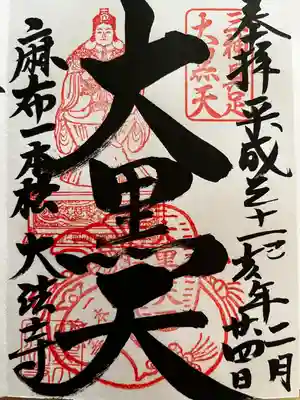 奉拝 平成三十一己亥年二月
廿四日
三神具足
大黒天
大黒天
麻布一本松 大法寺